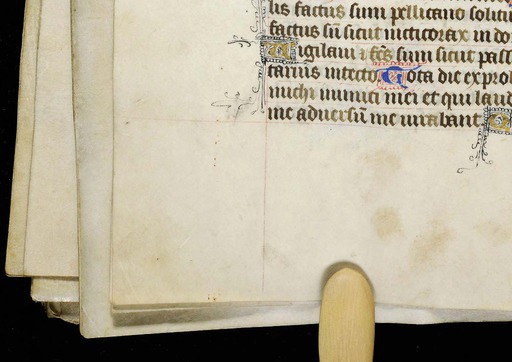 lis factus sum pellicano solitu
factus sū sicut nicticorax in do
Uigilaui ⁊ fc̄s sum sicut pass
in tecto Tota die exprob
michi inimici mei et qui laud
me aduersū me iurabant